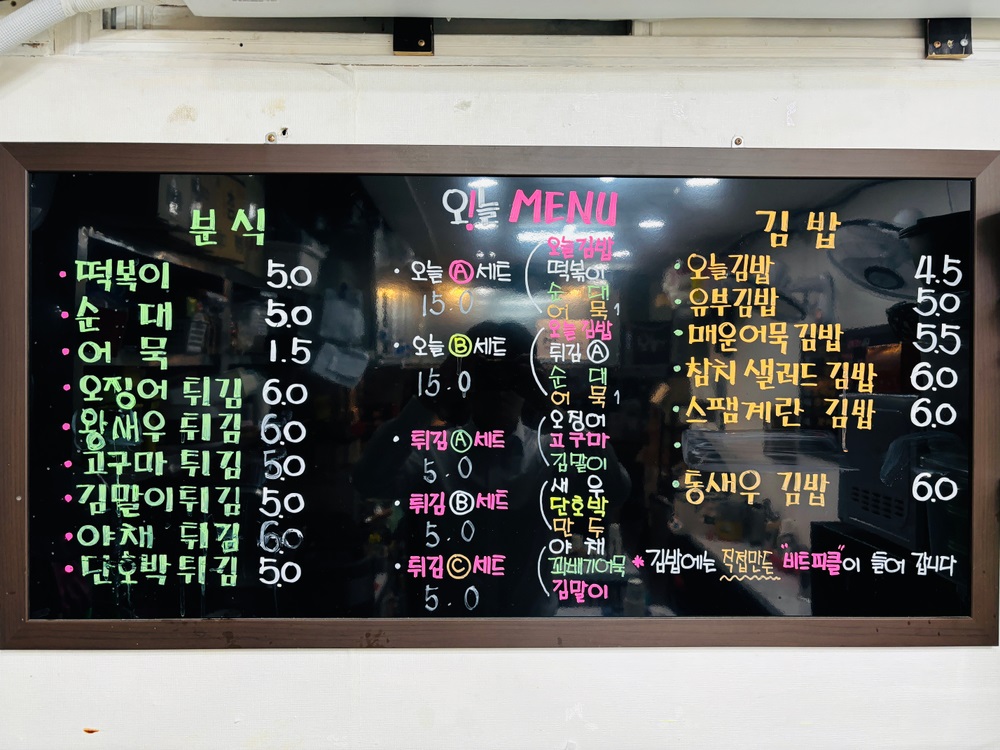 오!늘 MENU
분식
· 떡복이 5.0
· 순 대 5.0
· 어 묵 1.5
· 오징어 튀김 6.0
· 왕새우 튀김 6.0
· 고구마 튀김 5.0
· 김말이튀김 5.0
· 야채 튀김 6.0
· 단호박튀김 5.0
· 오늘 Ⓐ세트
15.0
오늘김밥
떡볶이
순 대
어 묵1
· 오늘 Ⓑ세트
15.0
오늘김밥
튀김 Ⓐ
순 대
어 묵1
· 튀김Ⓐ세트
5.0
오징어
고구마
김말이
· 튀김Ⓑ세트
5.0
새 우
단호박
만 두
· 튀김Ⓒ세트
5.0
야 채
꽈배기어묵
김말이
김 밥
· 오늘김밥 4.5
· 유부김밥 5.0
· 매운어묵김밥 5.5
· 참치 샐러드 김밥 6.0
· 스팸계란 김밥 6.0
·
· 통새우 김밥 6.0
* 김밥에는 직접만든 "비트피클"이 들어 갑니다